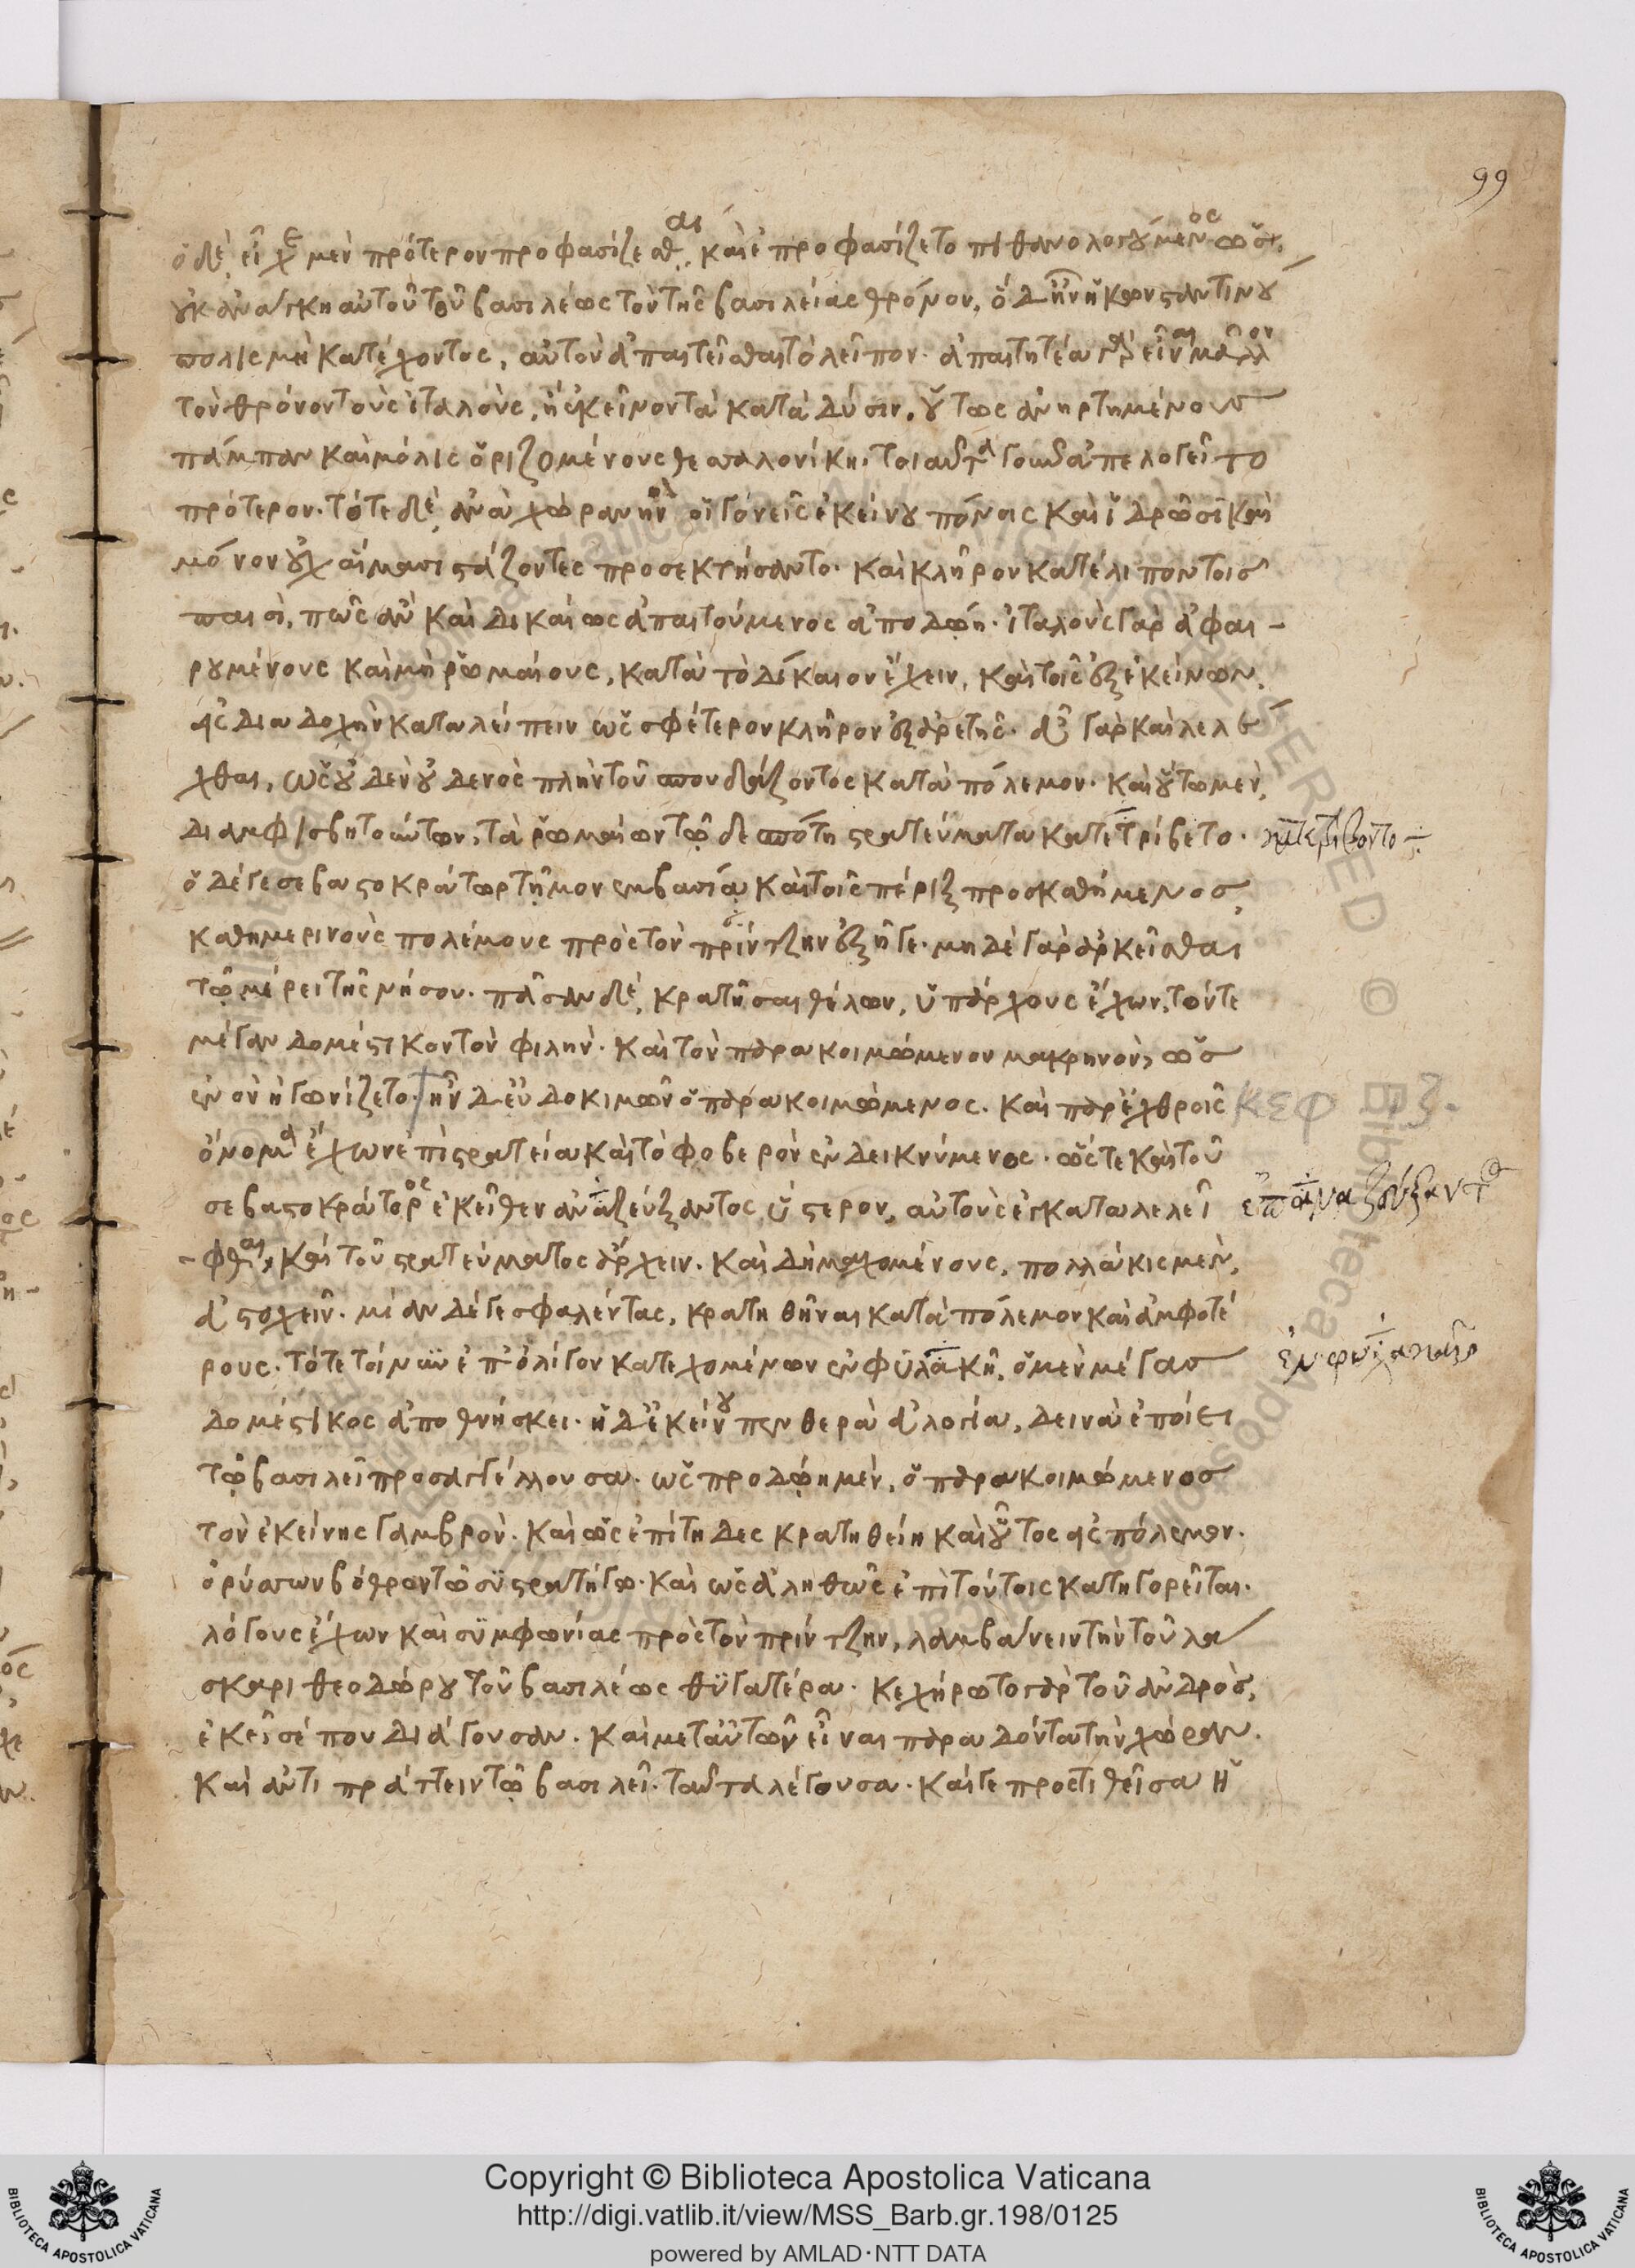 99
ὁ δὲ, εἶχε μὲν πρότερον προφασίζεσθαι, καὶ ἐπροφασίζετο πιθανολογούμενος ὡς,
οὐκ ἀνάγκη αὐτοῦ τοῦ βασιλέως τὸν τῆς βασιλείας θρόνον, ὃ δ' ἦν ἡ κωνσταντίνου
πόλις μὴ κατέχοντος, αὐτὸν ἀπαιτεῖσθαι τὸ λεῖπον. ἀπαιτητέα γὰρ εἶναι μᾶλλον
τὸν θρόνον τοὺς ἰταλοὺς, ἢ ἐκεῖνον τὰ κατὰ δύσιν, οὕτως ἀνηρτημένους
πάμπαν καὶ μόλις ὁριζομένους θεσσαλονίκη. τοιαῦτα γοῦν ἀπελογεῖτο
πρότερον. τότε δὲ, ἀνὰ χώραν ἣν οἱ γονεῖς ἐκείνου πόνοις καὶ ἱδρῶσι καὶ
μόνον οὐχ αἵμασι στάζοντες προσεκτήσαντο. καὶ κλῆρον κατέλιπον τοῖς
παισὶ, πῶς ἂν καὶ δικαίως ἀπαιτούμενος ἀποδῴη. ἰταλοὺς γὰρ ἀφαι-
ρουμένους καὶ μὴ ῥωμαίους, κατὰ τὸ δίκαιον ἔχειν, καὶ τοῖς ἐξ ἐκείνων,
εἰς διαδοχὴν καταλείπειν ὡς σφέτερον κλῆρον ἐξ ἀρετῆς.
χθαι, ὡς οὐδὲν οὐδενὸς πλὴν τοῦ σπουδάζοντος κατὰ πόλεμον. καὶ οὕτω μὲν,
δι' ἀμφισβητούντων, τὰ ῥωμαίων τῷ δεσπότῃ στρατεύματα κατετρίβετο. κατετρίβοντο
ὁ δέ γε σεβαστοκράτωρ τῇ μονεμβασίᾳ καὶ τοῖς πέριξ προσκαθήμενος,
καθημερινοὺς πολέμους πρὸς τὸν πρίντζην ἐξῆγε. μηδὲ γὰρ ἀρκεῖσθαι
τῷ μέρει τῆς νήσου. πᾶσαν δὲ, κρατῆσαι θέλων, ὑπάρχους ἔχων, τόν τε
μέγαν δομέστικον τὸν φιλῆν. καὶ τὸν παρακοιμώμενον μακρηνὸν, ὡς
ἐνὸν ἠγωνίζετο. ἦν δ' εὐδοκιμῶν ὁ παρακοιμώμενος. καὶ παρ' ἐχθροῖς κεφ ιζ.
ὄνομα ἔχων ἐπὶ στρατείᾳ καὶ τὸ φοβερὸν ἐνδεικνύμενος. ὥστε καὶ τοῦ
σεβαστοκράτορος ἐκεῖθεν ἀναζεύξαντος ὕστερον, αὐτοὺς ἐγκαταλελεῖ ἐπαναζεύξαντος
-φθαι, καὶ τοῦ στρατεύματος ἄρχειν. καὶ δὴ μαχομένους, πολλάκις μὲν,
εὐστοχεῖν. μίαν δέ γε σφαλέντας, κρατηθῆναι κατὰ πόλεμον καὶ ἀμφοτέ
ρους. τότε τοίνυν ἐπ' ὀλίγον κατεχομένων ἐν φυλακῇ, ὁ μὲν μέγας ἐν φυλακαῖς
δομέστικος ἀποθνήσκει. ἡ δ' ἐκείνου πενθερὰ εὐλογία, δεινὰ ἐποίει
τῷ βασιλεῖ προσαγγέλλουσα. ὡς προδῴη μὲν, ὁ παρακοιμώμενος
τὸν ἐκείνης γαμβρὸν. καὶ ὡς ἐπίτηδες κρατηθείη καὶ οὗτος εἰς πόλεμον.
ὀρύσσων βόθρον τῷ συστρατήγῳ. καὶ ὡς ἀληθῶς ἐπὶ τούτοις κατηγορεῖται.
λόγους ἔχων καὶ συμφωνίας πρὸς τὸν πρίντζην, λαμβάνειν τὴν τοῦ λα
σκαρι θεοδώρου τοῦ βασιλέως θυγατέρα. κεχήρωτο γὰρ τοῦ ἀνδρὸς,
ἐκεῖσέ που διάγουσαν. καὶ μετ' αὐτῶν εἶναι παραδόντα τὴν χώραν.
καὶ ἀντιπράττειν τῷ βασιλεῖ. ταῦτα λέγουσα. καί γε προστιθεῖσα ἡ